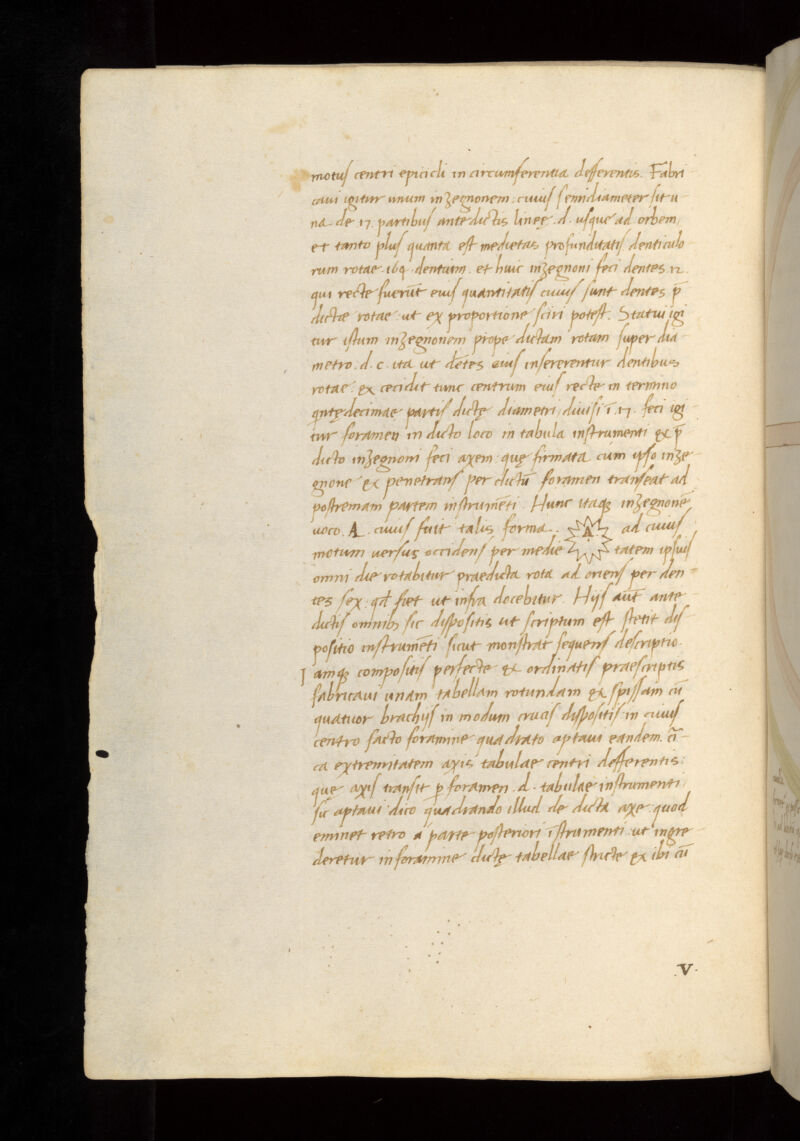 motus centri epicicli in circumferentia defferentis. Fabri
caui igitur unum inzegnonem: cuius semidiameter sit u
na de 17. partibus antedictis lineę. d. usque ad orbem.
et tanto plus quanta est medietas profunditatis denticulo
rum rotae 164 dentium. et huic inzegnoni feci dentes 12.
qui recte fuerūt eius quantitatis cuius sunt dentes p̄
dictae rotae: ut ex proportione sciri potest. Statui igi
tur istum inzegnonem prope dictam rotam super dia
metro. d. c. ita ut dētes eius insererentur dentibus
rotae: & cecidit tunc centrum eius recte in termino
qntędecimae partis dictę diametri diuisi ī 17. feci igi
tur foramen in dicto loco in tabula instrumenti & p̄
dicto inzegnoni feci axem quę firmata cum ipso inze
gnone & penetrans per dictū foramen transeat ad
postremam partem instrumēti. Hunc itaq; inzegnonē
uoco. A. cuius fuit talis forma. A ad cuius
motum uersus occidens per medie tatem ipsius
omni die rotabitur praedicta rota ad oriens per den
tes sex: qd fiet ut infra docebitur. Hijs aūt ante
dictis omnib; sic dispositis ut scriptum est stetit dis
positio instrumēti sicut monstrat sequens descriptio.
Iamq; compositis perfecte & ordinatis praescriptis
fabricaui unam tabellam rotundam & spissam cū
quatuor brachijs in modum crucis dispositis in cuius
centro facto foramine quadrato aptaui eandem cī
ca extremitatem axis tabulae centri defferentis:
quę axis transit p foramen. d. tabulae instrumenti
sic aptaui dico quadrando illud de dicta axe: quod
eminet retro a parte posteriori īstrumenti ut ingre
deretur in foramine dictę tabellae stricte & ibi cū
.V.